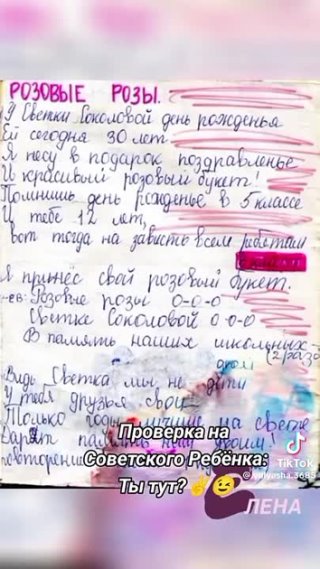 РОЗОВЫЕ РОЗЫ.
У Светки Соколовой день рожденья
Ей сегодня 30 лет
Я несу в подарок поздравленье
И красивый розовый букет!
Помнишь день рожденье в 5 классе
И тебе 12 лет,
Вот тогда на зависть всем ребятам
Я принёс свой розовый букет.
Розовые розы О-О-О
Светке Соколовой О-О-О
В память наших школьных
(2) раза
Ведь Светка мы не дети
У тебя друзья свои
Только годы на свете
Проверка на
Советского Ребёнка:
Ты тут? ✌😉
TikTok
ЛЕНА